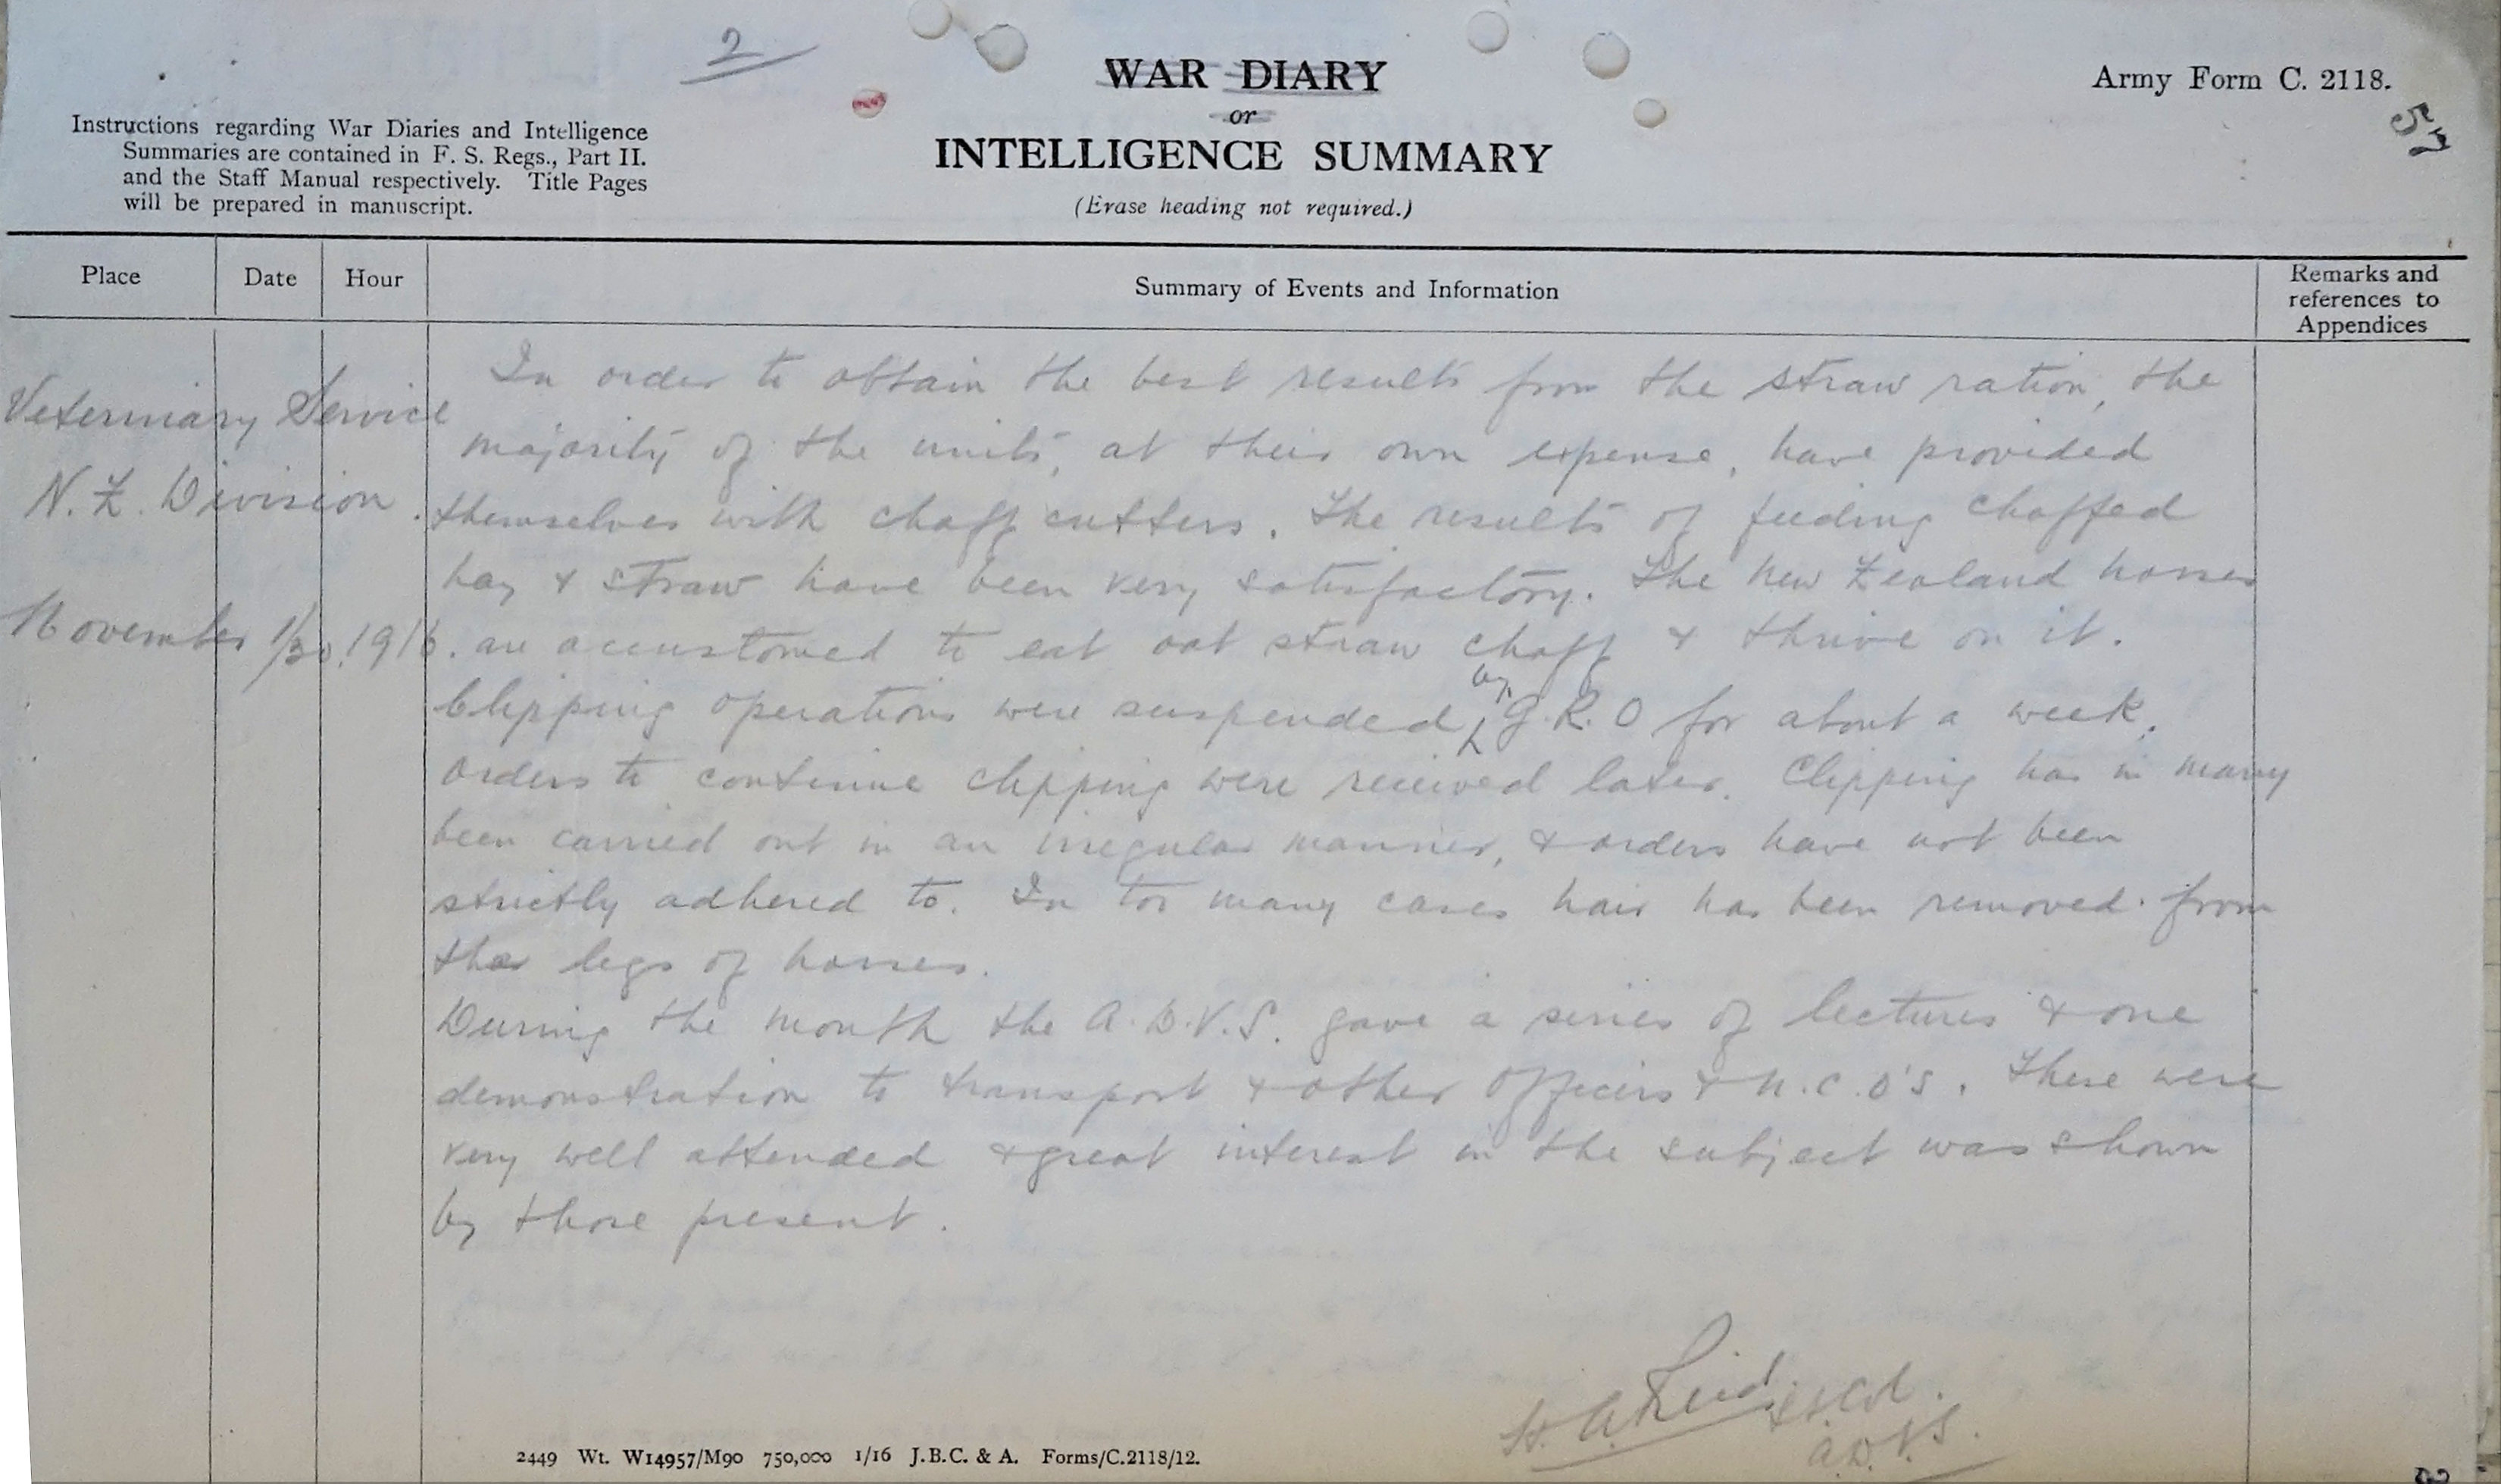 2
WAR DIARY
or
INTELLIGENCE SUMMARY
(Erase heading not required.)
Army Form C. 2118.
57
Instructions regarding War Diaries and Intelligence
Summaries are contained in F. S. Regs., Part II.
and the Staff Manual respectively. Title Pages
will be prepared in manuscript.
Place
Date
Hour
Summary of Events and Information
Remarks and
references to
Appendices
Veterinary Service
N. Z. Division.
November 1/30. 1916.
In order to obtain the best results from the straw ration, the
majority of the units, at their own expense, have provided
themselves with chaff cutters. The results of feeding chaffed
hay & straw have been very satisfactory. The New Zealand horses
are accustomed to eat oat straw chaff & thrive on it.
Clipping operations were suspended by G.R.O for about a week.
Orders to continue clipping were received later. Clipping has in many
been carried out in an irregular manner, & orders have not been
strictly adhered to. In too many cases hair has been removed from
the legs of horses.
During the month the A.D.V.S. gave a series of lectures & one
demonstration to transport & other Officers & N.C.O's. These were
very well attended & great interest in the subject was shown
by those present.
H. A. Reid
A.D.V.S.
2449 Wt. W14957/M90 750,000 1/16 J.B.C. & A. Forms/C.2118/12.